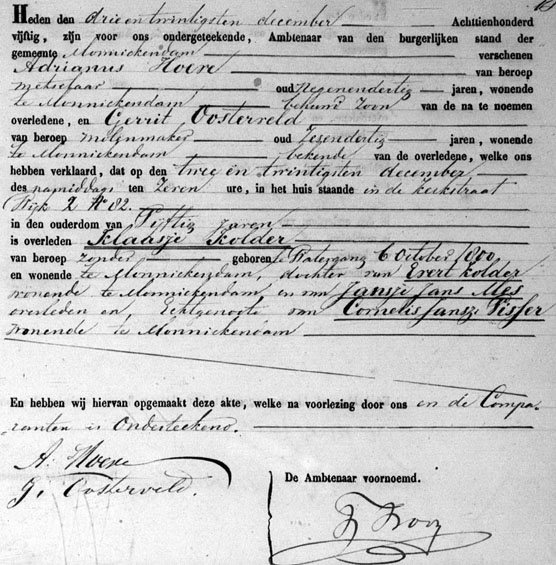 Heden den drie en twintigsten december Achttienhonderd
vijftig, zijn voor ons ondergeteekende, Ambtenaar van den burgerlijken stand der
gemeente Monnickendam verschenen
Adrianus Hoeve van beroep
metselaar oud Negenendertig jaren, wonende
te Monnickendam behuwd zoon van de na te noemen
overledene, en Gerrit Oosterveld
van beroep molenmaker oud Zesendertig jaren, wonende
te Monnickendam bekende van de overledene, welke ons
hebben verklaard, dat op den twee en twintigsten december
des namiddags ten Zeven ure, in het huis staande in de kerkstraat
Wijk 2 No 82.
in den ouderdom van Vijftig Jaren
is overleden Klaasje Kolder
van beroep zonder geboren te Watergang 6 October 1800
en wonende te Monnickendam, dochter van Evert Kolder
wonende te Monnickendam, en van Jansje Jans Mes
overleden en, Echtgenoote van Cornelis Jansz Visser
wonende te Monnickendam
En hebben wij hiervan opgemaakt deze akte, welke na voorlezing door ons en de Compa-
ranten is Onderteekend.
A. Hoeve
G. Oosterveld.
De Ambtenaar voornoemd.